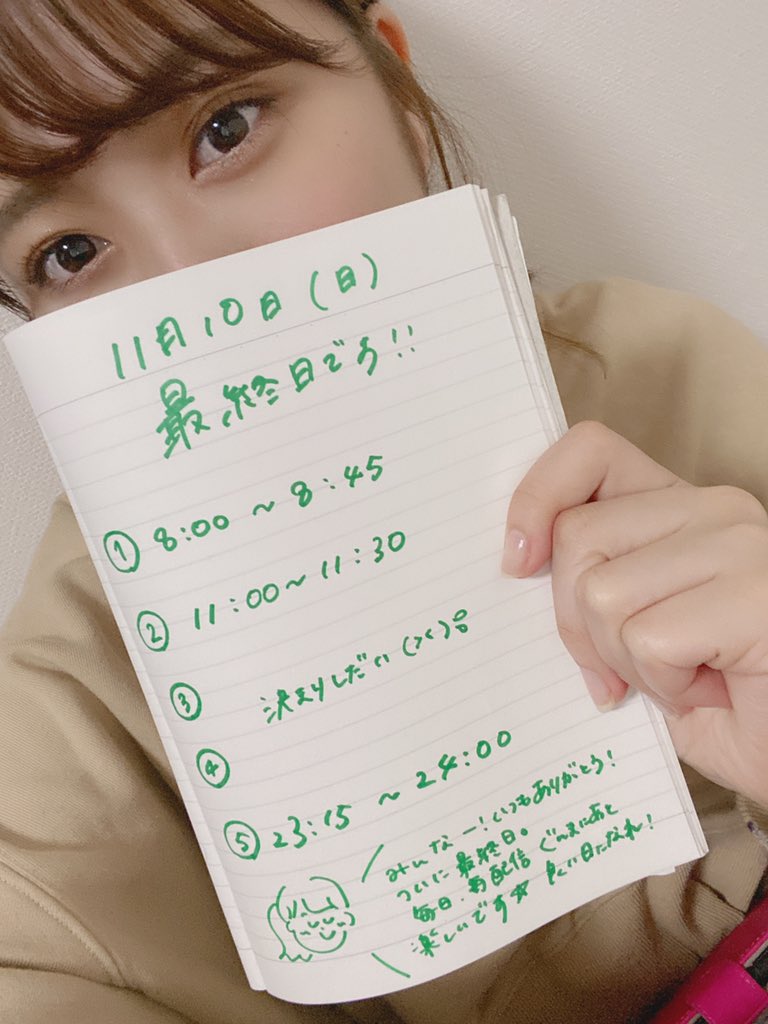 11月10日(日)
最終日です!!
① 8:00 ~ 8:45
② 11:00~11:30
③ 決まりしだい(><)
④
⑤ 23:15 ~ 24:00
みんなー!いつもありがとう!
ついに最終日。
毎日・毎配信
楽しいです☆ 良い日になれ!